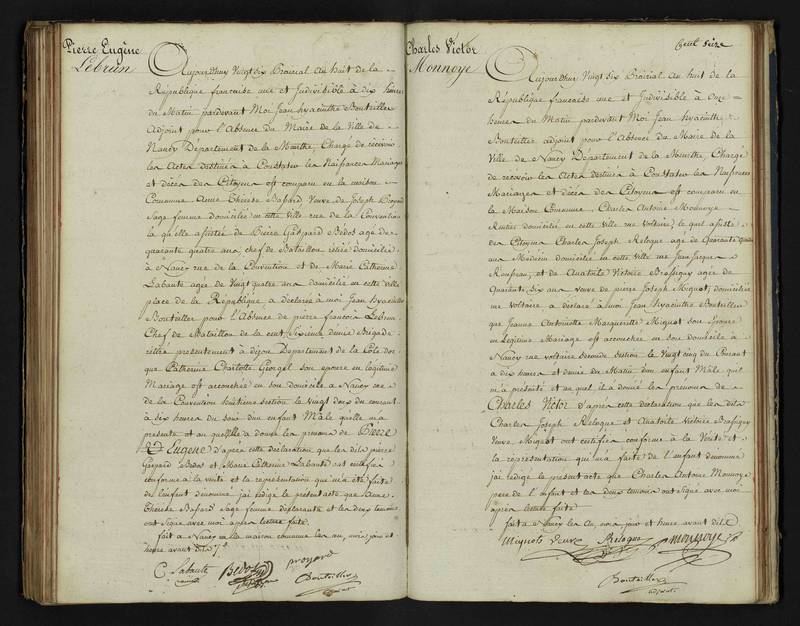 Pierre Eugène
Lebrun
Aujourd'huy Vingt Six Prairial An huit de la
République françoise une et Indivisible à dix heures
du Matin pardevant Moi Jean hyacinthe Boutteiller
Adjoint pour l'Absence du Maire de la Ville de
Nancy Département de la Meurthe, Chargé de recevoir
les Actes destinés à Constater les Naissances Mariages
et décès des Citoyens est comparu en la maison
Commune Anne Thérèse Bassard, Veuve de Joseph
Sage femme domiciliée en cette Ville rue de la Convention
la qu'elle assistée de Pierre Gaspard Bedos age de
quarante quatre ans chef de Bataillon retiré domicilié
à Nancy rue de la Convention et de Marie Catherine
Labauté agée de Vingt quatre ans domiciliée en cette ville
place de la République a déclarée à moi Jean hyacinthe
Boutteiller pour l'Absence de pierre françois Lebrun
Chef de Bataillon de la cent Sixieme demie Brigade
présentement à dijon Département de la Côte dor
que Catherine Charlotte Georgel son epouse en légitime
Mariage est accouchée en son domicile à Nancy rue
de la Convention huitième section le vingt deux du courant
à six heures du soir d'un enfant Mâle qu'elle m'a
présenté et au quel elle a donné les prénoms de Pierre
Eugène D'après cette déclaration que les dits pierre
Gaspard Bedos et Marie Catherine Labauté ont certifiée
conforme à la verité et la représentation qui m'a été faite
de l'enfant denommé j'ai rédigé le présent acte que Anne
Thérèse Bassard Sage femme déclarante et les deux témoins
ont Signé avec moi après lecture faite.
fait à Nancy en la maison commune les an, mois jour et
heure avant dits
C. Labauté Bedos
Boutteiller
adjoint
Cent Seize
Charles Victor
Monnoye
Aujourd'huy Vingt Six Prairial An huit de la
République françoise une et Indivisible à Onze
heures du Matin pardevant Moi Jean hyacinthe
Boutteiller adjoint pour l'Absence du Maire de la
Ville de Nancy Département de la Meurthe, Chargé
de recevoir les Actes destinés à Constater les Naissances
Mariages et décès des Citoyens est comparu en
la Maison Commune Charles Antoine Monnoye
Rentier domicilié en cette Ville rue Voltaire, le quel assisté
des Citoyens Charles Joseph Reloque agé de Quarante
ans Médecin domicilié en cette Ville rue Jean Jacques
Rousseau, et de Victoire agée de
Quarante Six ans Veuve de pierre Joseph Mignot, domiciliée
rue voltaire a déclaré à moi Jean hyacinthe Boutteiller
que Jeanne Antoinette Marguerite Mignot son Epouse
en légitime Mariage est accouchée en son domicile à
Nancy rue voltaire seconde section le vingt cinq du Courant
à dix heures et demie du Matin d'un enfant Mâle qu'il
m'a présenté et au quel il a donné les prénoms de
Charles Victor d'après cette déclaration que les dits
Charles Joseph Reloque et Victoire
Veuve Mignot ont certifiée conforme à la Verité et
la représentation qui m'a faite de l'enfant denommé
j'ai rédigé le présent acte que Charles Antoine Monnoye
père de l'enfant et les deux témoins ont Signé avec moi
après lecture faite
fait à Nancy les An, mois jour et heure avant dits
Mignots veuve Reloque Monnoye
Boutteiller
adjoint